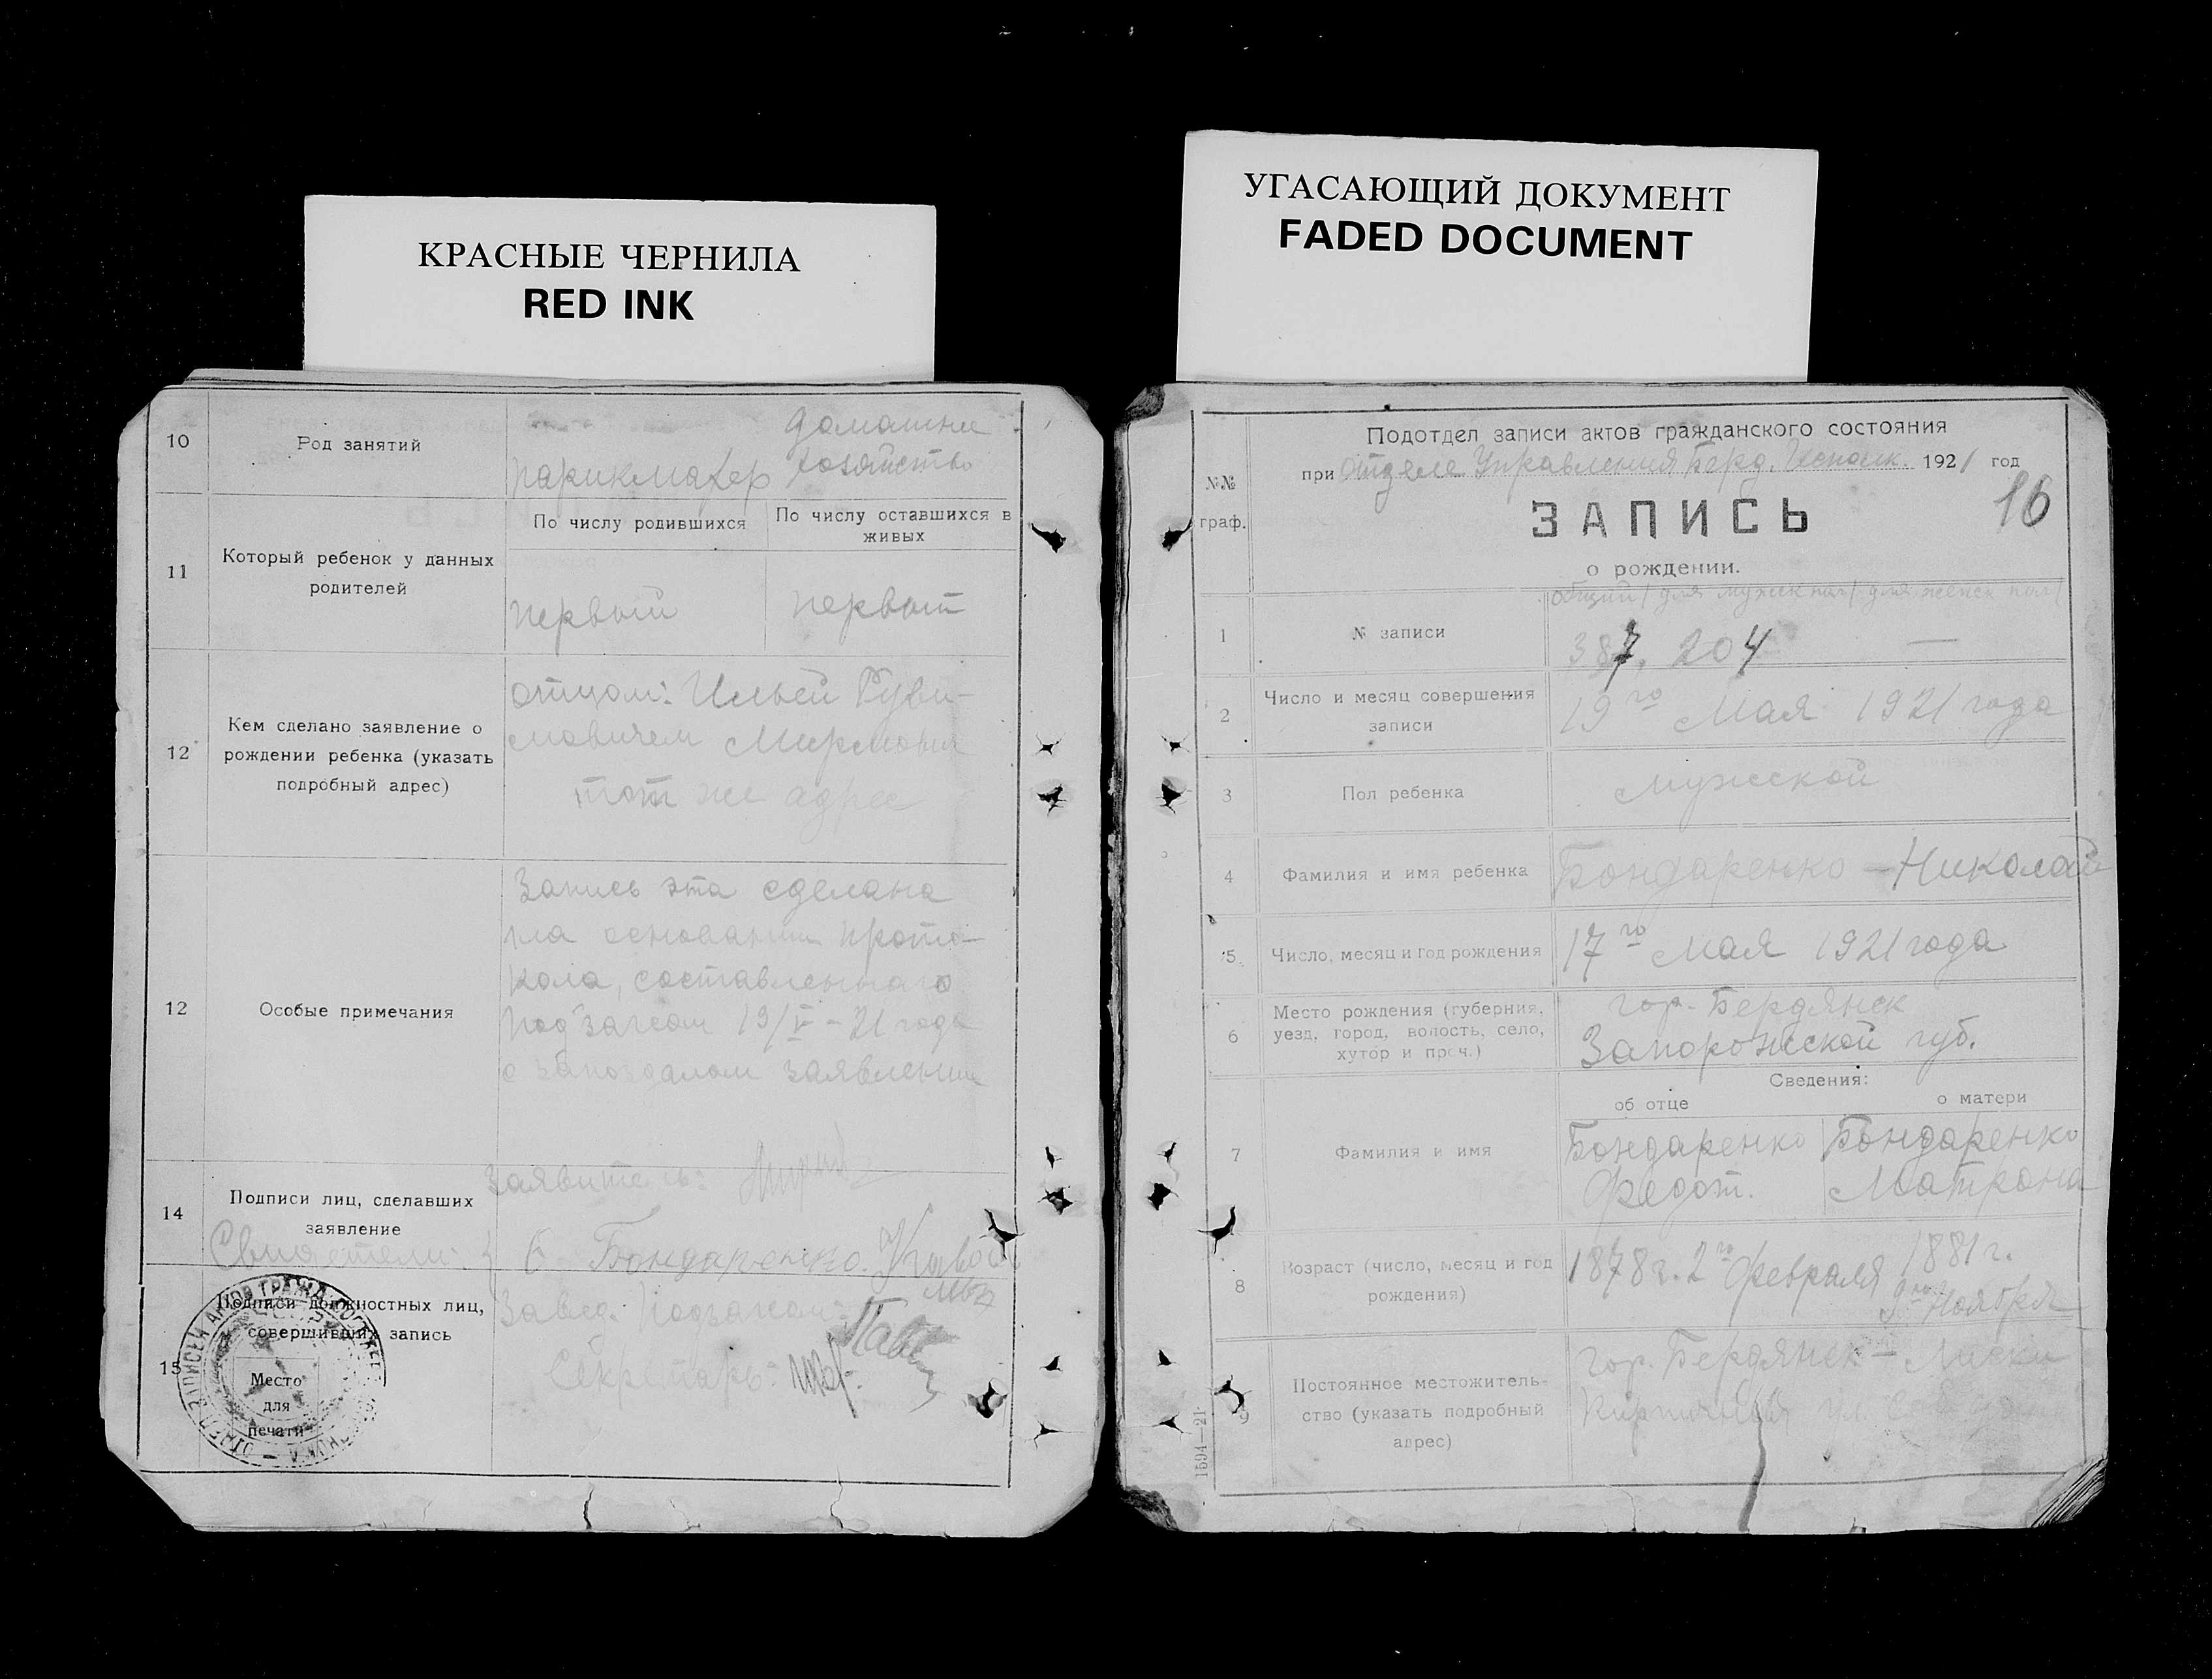 КРАСНЫЕ ЧЕРНИЛА
RED INK
УГАСАЮЩИЙ ДОКУМЕНТ
FADED DOCUMENT
10
Род занятий
парикмахер
домашнее
хозяйство
11
Который ребенок у данных
родителей
По числу родившихся
По числу оставшихся в
живых
первый
первый
12
Кем сделано заявление о
рождении ребенка (указать
подробный адрес)
отцом: Ильей Руви-
мовичем
тот же адрес
12
Особые примечания
Запись эта сделана
на основании прото-
кола, составленного
под'загсом 19/V-21 года
о запоздалом заявлении
14
Подписи лиц, сделавших
заявление
Заявитель:
Свидетели:
Бондаренко.
15
Подписи должностных лиц,
совершивших запись
Место
для
печати
Завед. Подзагсом:
Секретарь:
№№
граф.
Подотдел записи актов гражданского состояния
при Отделе Управления Берд. Исполк. 1921 год
16
ЗАПИСЬ
о рождении.
общий / для мужск пол / для женск пол /
1
№ записи
387. 204 —
2
Число и месяц совершения
записи
19го Мая 1921 года
3
Пол ребенка
мужской
4
Фамилия и имя ребенка
Бондаренко - Николай
5
Число, месяц и год рождения
17го Мая 1921 года
6
Место рождения (губерния,
уезд, город, волость, село,
хутор и проч.)
гор. Бердянск
Запорожской губ.
Сведения:
об отце
о матери
7
Фамилия и имя
Бондаренко
Федот.
Бондаренко
Матрона
8
Возраст (число, месяц и год
рождения)
1878 г. 2го Февраля
1881 г.
9го Ноября
9
Постоянное местожитель-
ство (указать подробный
адрес)
гор. Бердянск - Лиски
ул.
1594—21